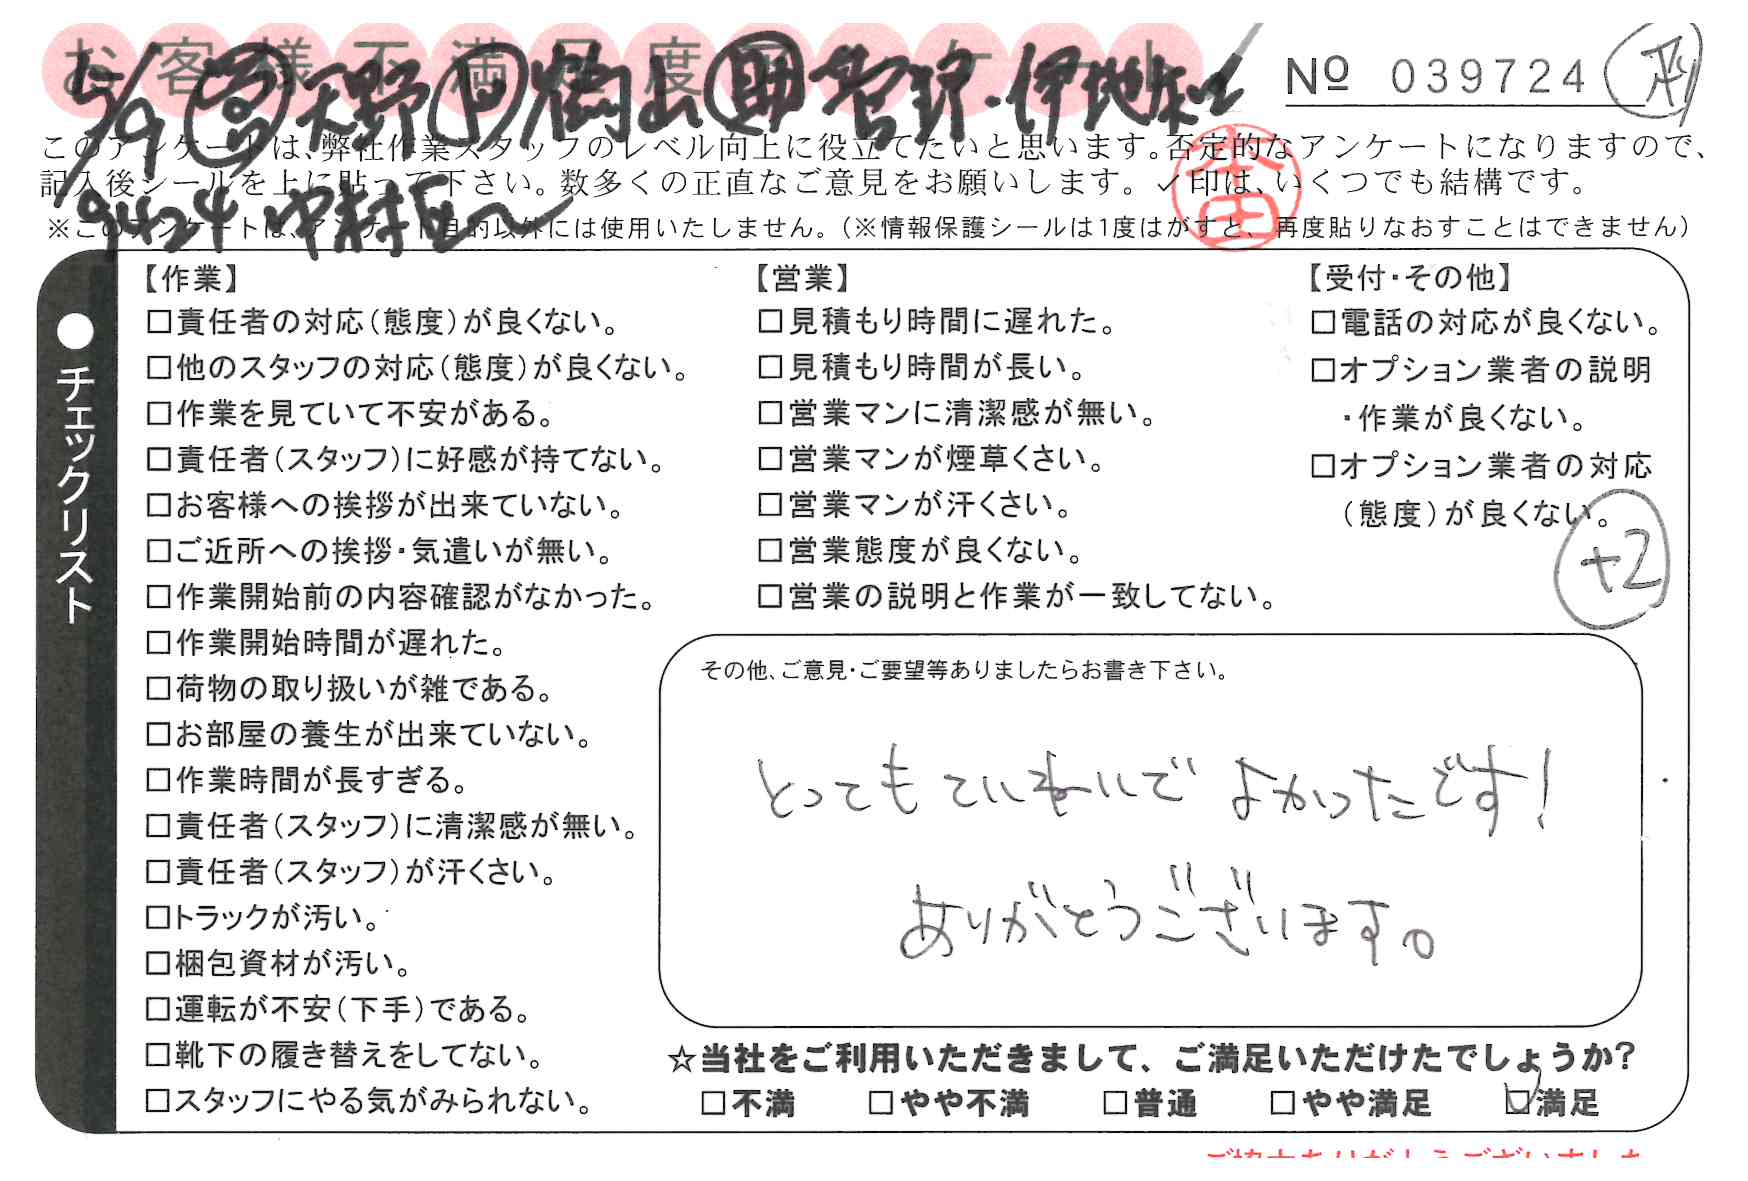 お客様不満足度アンケート
№ 039724
5/9 天野 鶴山 菅野・伊地知
9424 中村区〜
このアンケートは、弊社作業スタッフのレベル向上に役立てたいと思います。否定的なアンケートになりますので、
記入後シールを上に貼って下さい。数多くの正直なご意見をお願いします。✓印は、いくつでも結構です。
※このアンケートは、アンケート目的以外には使用いたしません。（※情報保護シールは1度はがすと、再度貼りなおすことはできません）
●チェックリスト
【作業】
□責任者の対応（態度）が良くない。
□他のスタッフの対応（態度）が良くない。
□作業を見ていて不安がある。
□責任者（スタッフ）に好感が持てない。
□お客様への挨拶が出来ていない。
□ご近所への挨拶・気遣いが無い。
□作業開始前の内容確認がなかった。
□作業開始時間が遅れた。
□荷物の取り扱いが雑である。
□お部屋の養生が出来ていない。
□作業時間が長すぎる。
□責任者（スタッフ）に清潔感が無い。
□責任者（スタッフ）が汗くさい。
□トラックが汚い。
□梱包資材が汚い。
□運転が不安（下手）である。
□靴下の履き替えをしてない。
□スタッフにやる気がみられない。
【営業】
□見積もり時間に遅れた。
□見積もり時間が長い。
□営業マンに清潔感が無い。
□営業マンが煙草くさい。
□営業マンが汗くさい。
□営業態度が良くない。
□営業の説明と作業が一致してない。
【受付・その他】
□電話の対応が良くない。
□オプション業者の説明
・作業が良くない。
□オプション業者の対応
（態度）が良くない。
+2
その他、ご意見・ご要望等ありましたらお書き下さい。
とってもていねいでよかったです！
ありがとうございます。
☆当社をご利用いただきまして、ご満足いただけたでしょうか？
□不満 □やや不満 □普通 □やや満足 ☑満足
ご協力ありがとうございました